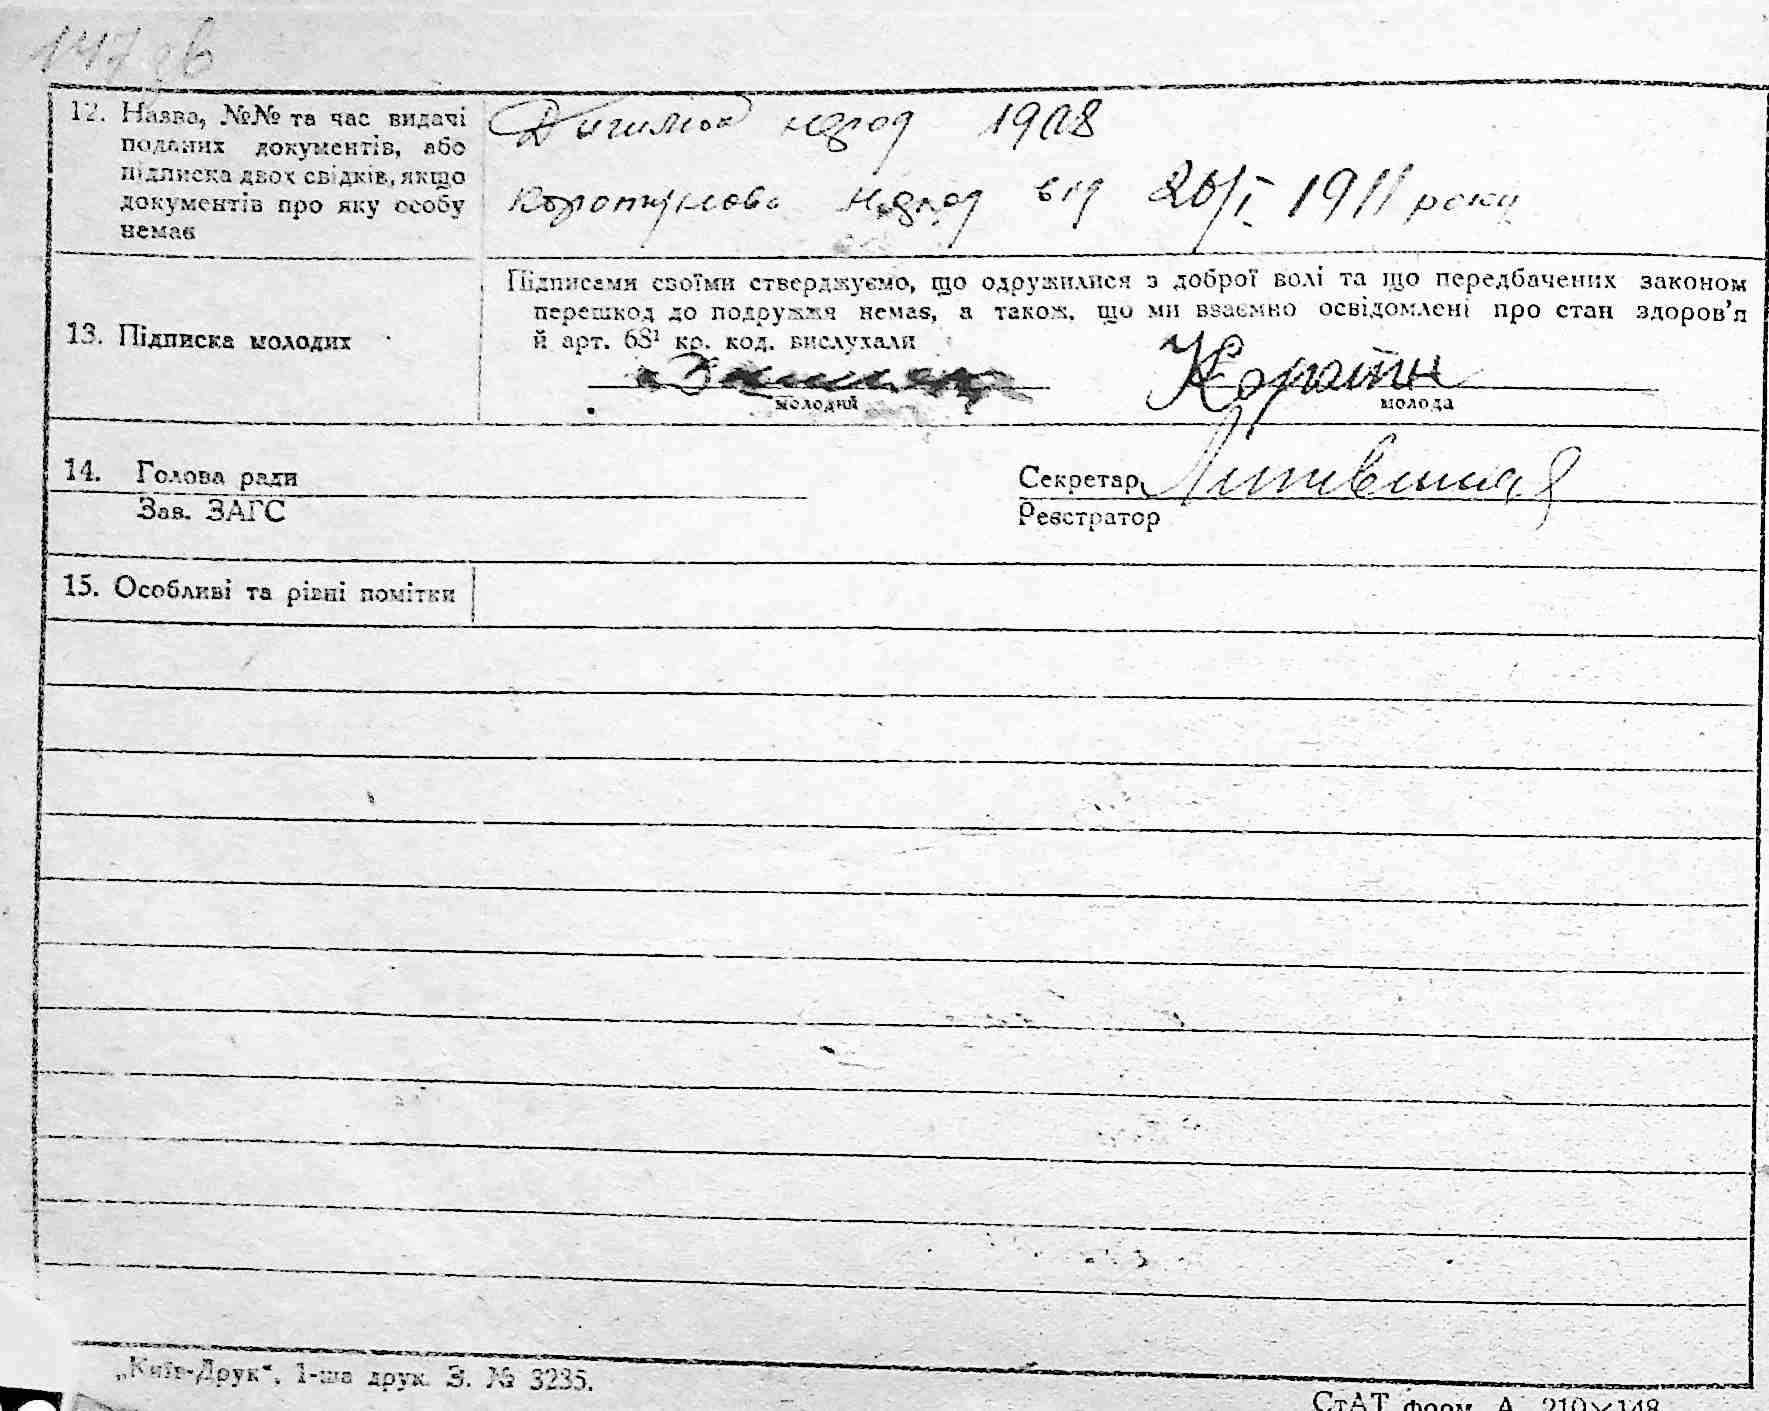 147 зв
12. Назва, №№ та час видачі
поданих документів, або
підписка двох свідків, якщо
документів про яку особу
немає
народ 1908
народ від 26/I 1911 року
13. Підписка молодих
Підписами своїми стверджуємо, що одружилися з доброї волі та що передбачених законом
перешкод до подружжя немає, а також, що ми взаємно освідомлені про стан здоров'я
й арт. 68¹ кр. код. вислухали
молодий
молода
14. Голова ради
Зав. ЗАГС
Секретар
Реєстратор
15. Особливі та різні помітки
„Київ-Друк“, 1-ша друк. З. № 3235.
СтАТ форм. А 210×148